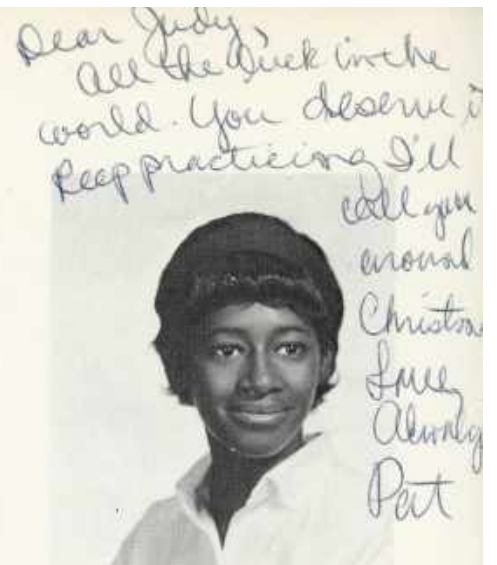 Dear Judy,
All the luck in the
world. You deserve it
Keep practicing I'll
call you
around
Christmas
Love
Always
Pat